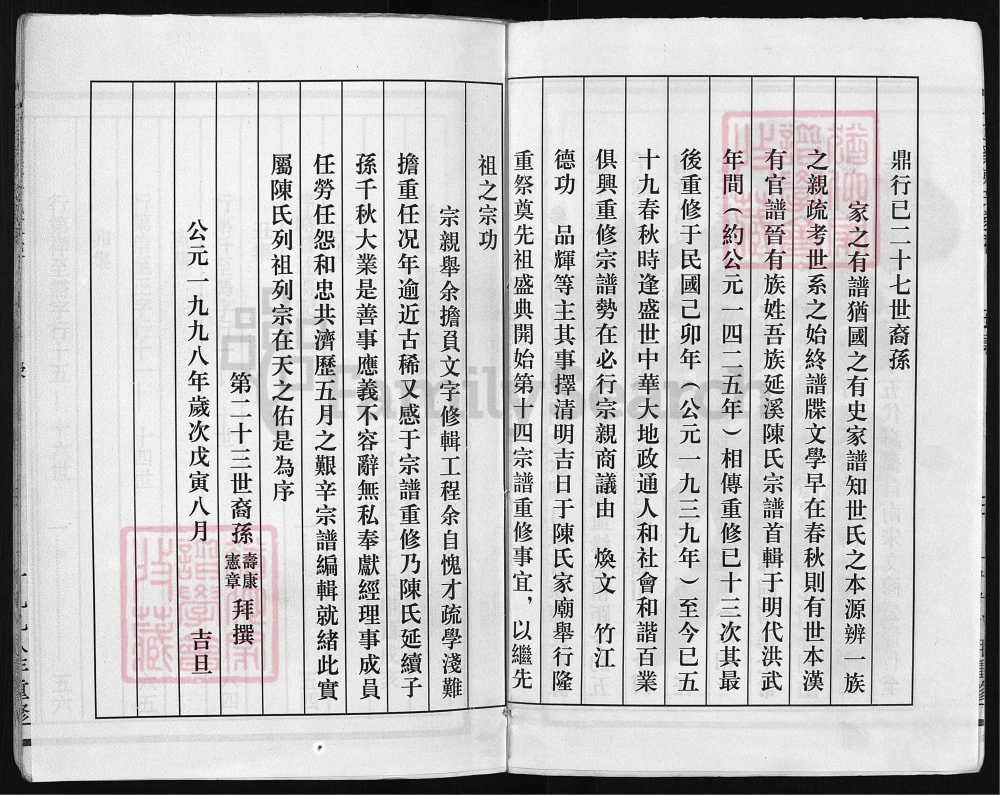 鼎行已二十七世裔孫
家之有譜猶國之有史家譜知世氏之本源辨一族
之親疏考世系之始終譜牒文學早在春秋則有世本漢
有官譜晉有族姓吾族延溪陳氏宗譜首輯于明代洪武
年間（約公元一四二五年）相傳重修已十三次其最
後重修于民國己卯年（公元一九三九年）至今已五
十九春秋時逢盛世中華大地政通人和社會和諧百業
俱興重修宗譜勢在必行宗親商議由 煥文 竹江
德功 品輝等主其事擇清明吉日于陳氏家廟舉行隆
重祭奠先祖盛典開始第十四宗譜重修事宜，以繼先
祖之宗功
宗親舉余擔負文字修輯工程余自愧才疏學淺難
擔重任況年逾近古稀又感于宗譜重修乃陳氏延續子
孫千秋大業是善事應義不容辭無私奉獻經理事成員
任勞任怨和忠共濟歷五月之艱辛宗譜編輯就緒此實
屬陳氏列祖列宗在天之佑是為序
第二十三世裔孫 壽康 憲章 拜撰
公元一九九八年歲次戊寅八月 吉旦
FamilySearch